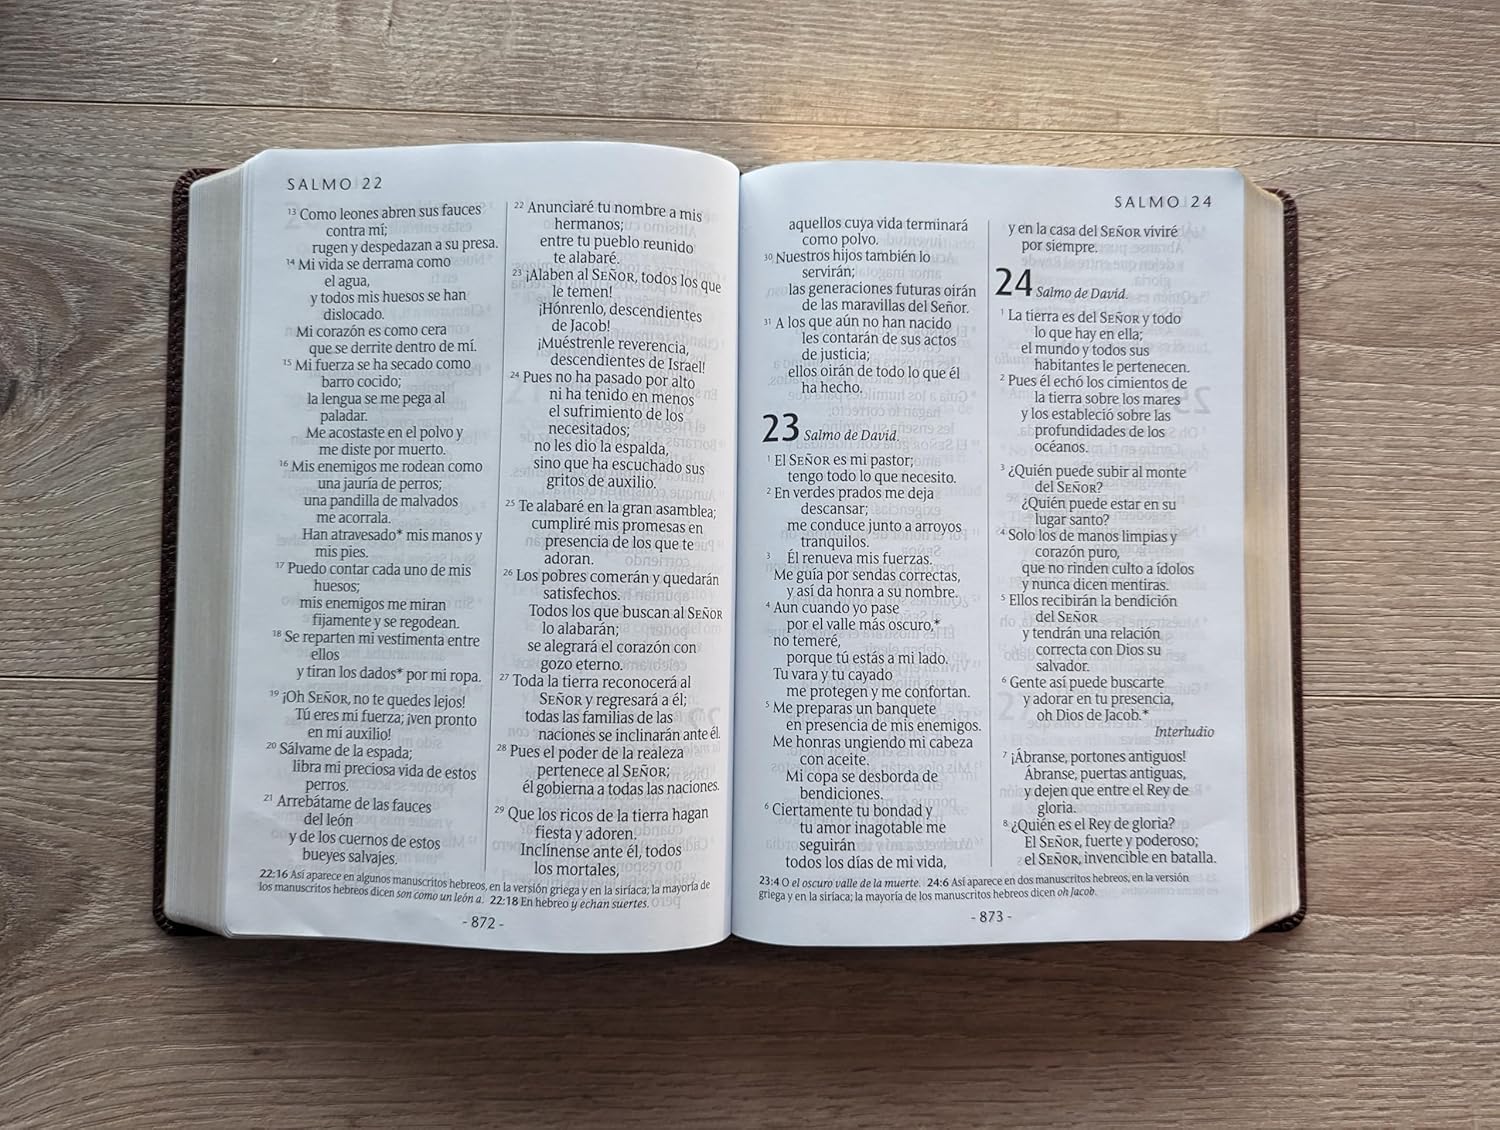 SALMO 22
13 Como leones abren sus fauces
contra mí;
rugen y despedazan a su presa.
14 Mi vida se derrama como
el agua,
y todos mis huesos se han
dislocado.
Mi corazón es como cera
que se derrite dentro de mí.
15 Mi fuerza se ha secado como
barro cocido;
la lengua se me pega al
paladar.
Me acostaste en el polvo y
me diste por muerto.
16 Mis enemigos me rodean como
una jauría de perros;
una pandilla de malvados
me acorrala.
Han atravesado* mis manos y
mis pies.
17 Puedo contar cada uno de mis
huesos;
mis enemigos me miran
fijamente y se regodean.
18 Se reparten mi vestimenta entre
ellos
y tiran los dados* por mi ropa.
19 ¡Oh SEÑOR, no te quedes lejos!
Tú eres mi fuerza; ¡ven pronto
en mi auxilio!
20 Sálvame de la espada;
libra mi preciosa vida de estos
perros.
21 Arrebátame de las fauces
del león
y de los cuernos de estos
bueyes salvajes.
22 Anunciaré tu nombre a mis
hermanos;
entre tu pueblo reunido
te alabaré.
23 ¡Alaben al SEÑOR, todos los que
le temen!
¡Hónrenlo, descendientes
de Jacob!
¡Muéstrenle reverencia,
descendientes de Israel!
24 Pues no ha pasado por alto
ni ha tenido en menos
el sufrimiento de los
necesitados;
no les dio la espalda,
sino que ha escuchado sus
gritos de auxilio.
25 Te alabaré en la gran asamblea;
cumpliré mis promesas en
presencia de los que te
adoran.
26 Los pobres comerán y quedarán
satisfechos.
Todos los que buscan al SEÑOR
lo alabarán;
se alegrará el corazón con
gozo eterno.
27 Toda la tierra reconocerá al
SEÑOR y regresará a él;
todas las familias de las
naciones se inclinarán ante él.
28 Pues el poder de la realeza
pertenece al SEÑOR;
él gobierna a todas las naciones.
29 Que los ricos de la tierra hagan
fiesta y adoren.
Inclínense ante él, todos
los mortales,
22:16 Así aparece en algunos manuscritos hebreos, en la versión griega y en la siríaca; la mayoría de
los manuscritos hebreos dicen son como un león a. 22:18 En hebreo y echan suertes.
- 872 -
SALMO 24
aquellos cuya vida terminará
como polvo.
30 Nuestros hijos también lo
servirán;
las generaciones futuras oirán
de las maravillas del Señor.
31 A los que aún no han nacido
les contarán de sus actos
de justicia;
ellos oirán de todo lo que él
ha hecho.
23 Salmo de David.
1 El SEÑOR es mi pastor;
tengo todo lo que necesito.
2 En verdes prados me deja
descansar;
me conduce junto a arroyos
tranquilos.
3 Él renueva mis fuerzas.
Me guía por sendas correctas,
y así da honra a su nombre.
4 Aun cuando yo pase
por el valle más oscuro,*
no temeré,
porque tú estás a mi lado.
Tu vara y tu cayado
me protegen y me confortan.
5 Me preparas un banquete
en presencia de mis enemigos.
Me honras ungiendo mi cabeza
con aceite.
Mi copa se desborda de
bendiciones.
6 Ciertamente tu bondad y
tu amor inagotable me
seguirán
todos los días de mi vida,
y en la casa del SEÑOR viviré
por siempre.
24 Salmo de David.
1 La tierra es del SEÑOR y todo
lo que hay en ella;
el mundo y todos sus
habitantes le pertenecen.
2 Pues él echó los cimientos de
la tierra sobre los mares
y los estableció sobre las
profundidades de los
océanos.
3 ¿Quién puede subir al monte
del SEÑOR?
¿Quién puede estar en su
lugar santo?
4 Solo los de manos limpias y
corazón puro,
que no rinden culto a ídolos
y nunca dicen mentiras.
5 Ellos recibirán la bendición
del SEÑOR
y tendrán una relación
correcta con Dios su
salvador.
6 Gente así puede buscarte
y adorar en tu presencia,
oh Dios de Jacob.*
Interludio
7 ¡Ábranse, portones antiguos!
Ábranse, puertas antiguas,
y dejen que entre el Rey de
gloria.
8 ¿Quién es el Rey de gloria?
El SEÑOR, fuerte y poderoso;
el SEÑOR, invencible en batalla.
23:4 O el oscuro valle de la muerte. 24:6 Así aparece en dos manuscritos hebreos, en la versión
griega y en la siríaca; la mayoría de los manuscritos hebreos dicen oh Jacob.
- 873 -